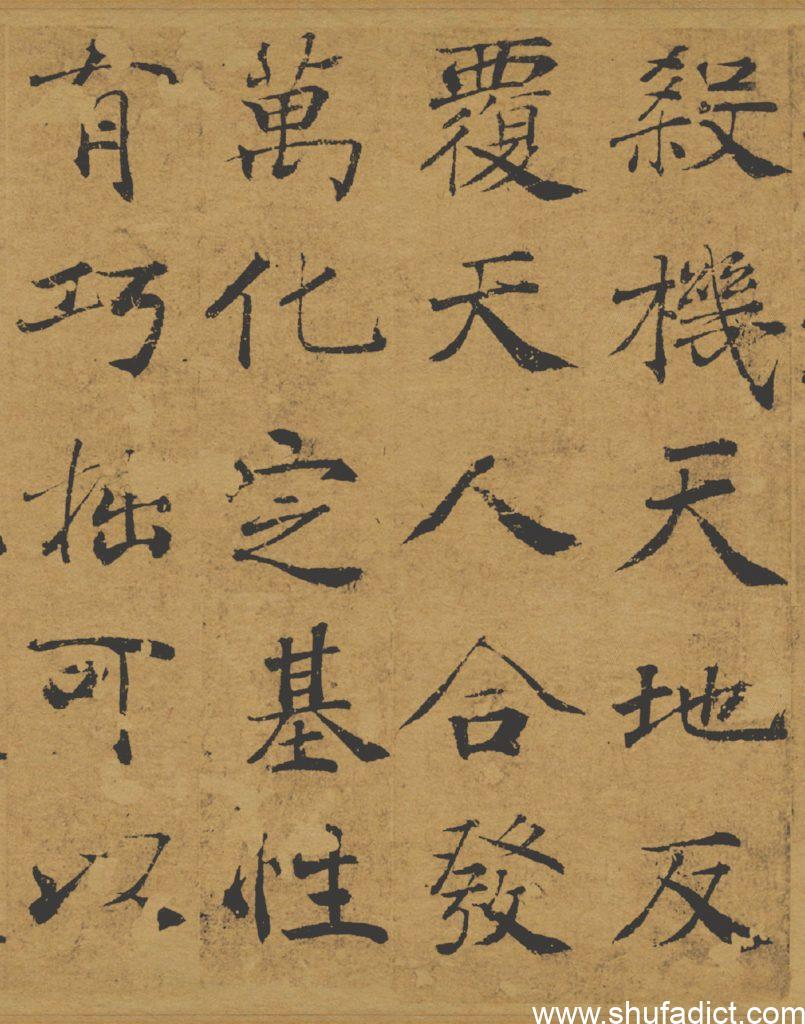 殺機天地反
覆天人合發
萬化定基性
有巧拙可以
www.shufadict.com